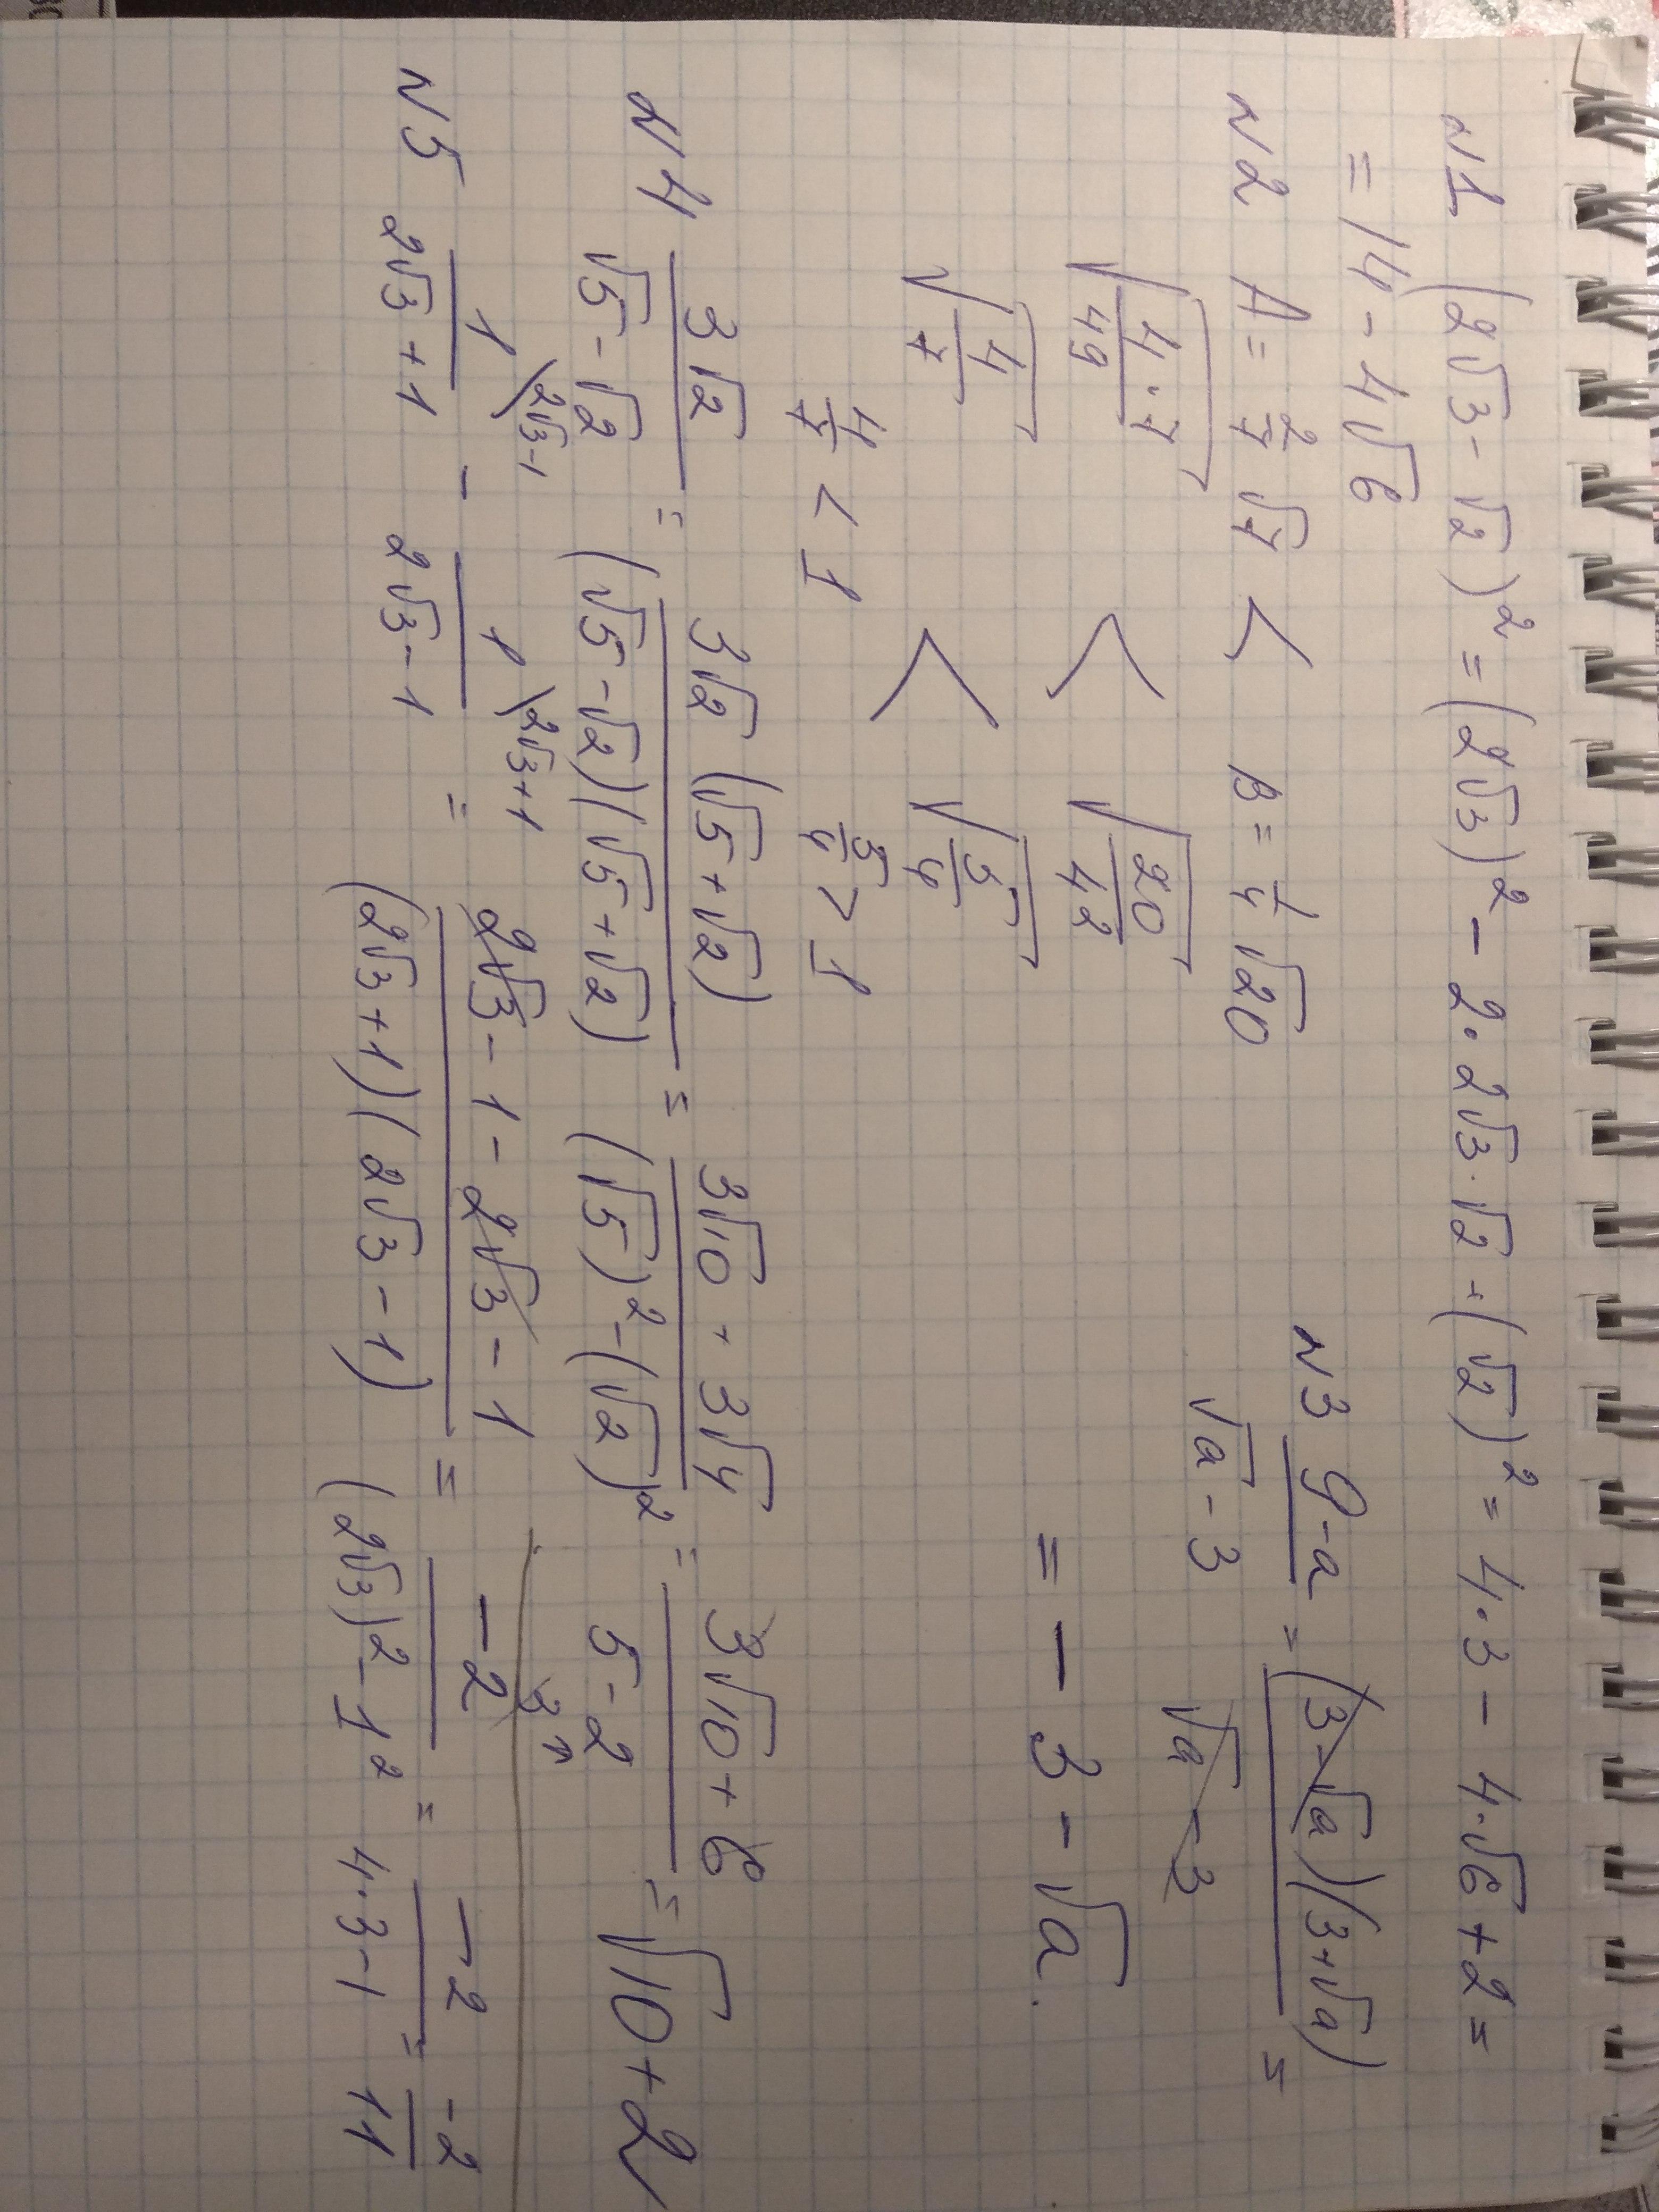 N1 (2√3 - √2)² = (2√3)² - 2·2√3·√2 + (√2)² = 4·3 - 4·√6 + 2 =
= 14 - 4√6
N2 A = 2/7 √7 < B = 1/4 √20
√(4·7/49) < √(20/42)
√(4/7) < √(5/4)
4/7 < 1 5/4 > 1
N3 (9-a)/(√a - 3) = (3-√a)(3+√a)/(√a - 3) =
= - 3 - √a.
N4 3√2/(√5 - √2) = 3√2 (√5 + √2)/((√5 - √2)(√5 + √2)) = (3√10 + 3√4)/((√5)² - (√2)²) = (3√10 + 6)/(5 - 2) = √10 + 2
3
N5 1\2√3-1/(2√3 + 1) - 1\2√3+1/(2√3 - 1) = (2√3 - 1 - 2√3 - 1)/((2√3 + 1)(2√3 - 1)) = -2/((2√3)² - 1²) = -2/(4·3-1) = -2/11